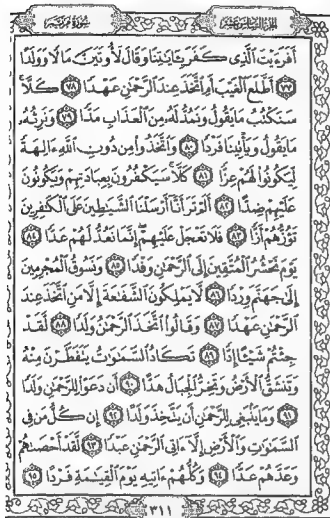 الجزء السادس عشر
سورة مريم
أَفَرَءَيْتَ ٱلَّذِى كَفَرَ بِـَٔايَـٰتِنَا وَقَالَ لَأُوتَيَنَّ مَالًا وَوَلَدًا
٧٧ أَطَّلَعَ ٱلْغَيْبَ أَمِ ٱتَّخَذَ عِندَ ٱلرَّحْمَـٰنِ عَهْدًا ٧٨ كَلَّا
سَنَكْتُبُ مَا يَقُولُ وَنَمُدُّ لَهُۥ مِنَ ٱلْعَذَابِ مَدًّا ٧٩ وَنَرِثُهُۥ
مَا يَقُولُ وَيَأْتِينَا فَرْدًا ٨٠ وَٱتَّخَذُوا۟ مِن دُونِ ٱللَّهِ ءَالِهَةً
لِّيَكُونُوا۟ لَهُمْ عِزًّا ٨١ كَلَّا سَيَكْفُرُونَ بِعِبَادَتِهِمْ وَيَكُونُونَ
عَلَيْهِمْ ضِدًّا ٨٢ أَلَمْ تَرَ أَنَّآ أَرْسَلْنَا ٱلشَّيَـٰطِينَ عَلَى ٱلْكَـٰفِرِينَ
تَؤُزُّهُمْ أَزًّا ٨٣ فَلَا تَعْجَلْ عَلَيْهِمْ إِنَّمَا نَعُدُّ لَهُمْ عَدًّا ٨٤
يَوْمَ نَحْشُرُ ٱلْمُتَّقِينَ إِلَى ٱلرَّحْمَـٰنِ وَفْدًا ٨٥ وَنَسُوقُ ٱلْمُجْرِمِينَ
إِلَىٰ جَهَنَّمَ وِرْدًا ٨٦ لَّا يَمْلِكُونَ ٱلشَّفَـٰعَةَ إِلَّا مَنِ ٱتَّخَذَ عِندَ
ٱلرَّحْمَـٰنِ عَهْدًا ٨٧ وَقَالُوا۟ ٱتَّخَذَ ٱلرَّحْمَـٰنُ وَلَدًا ٨٨ لَّقَدْ
جِئْتُمْ شَيْـًٔا إِدًّا ٨٩ تَكَادُ ٱلسَّمَـٰوَٰتُ يَتَفَطَّرْنَ مِنْهُ
وَتَنشَقُّ ٱلْأَرْضُ وَتَخِرُّ ٱلْجِبَالُ هَدًّا ٩٠ أَن دَعَوْا۟ لِلرَّحْمَـٰنِ وَلَدًا
٩١ وَمَا يَنۢبَغِى لِلرَّحْمَـٰنِ أَن يَتَّخِذَ وَلَدًا ٩٢ إِن كُلُّ مَن فِى
ٱلسَّمَـٰوَٰتِ وَٱلْأَرْضِ إِلَّآ ءَاتِى ٱلرَّحْمَـٰنِ عَبْدًا ٩٣ لَّقَدْ أَحْصَىٰهُمْ
وَعَدَّهُمْ عَدًّا ٩٤ وَكُلُّهُمْ ءَاتِيهِ يَوْمَ ٱلْقِيَـٰمَةِ فَرْدًا ٩٥
٣١١